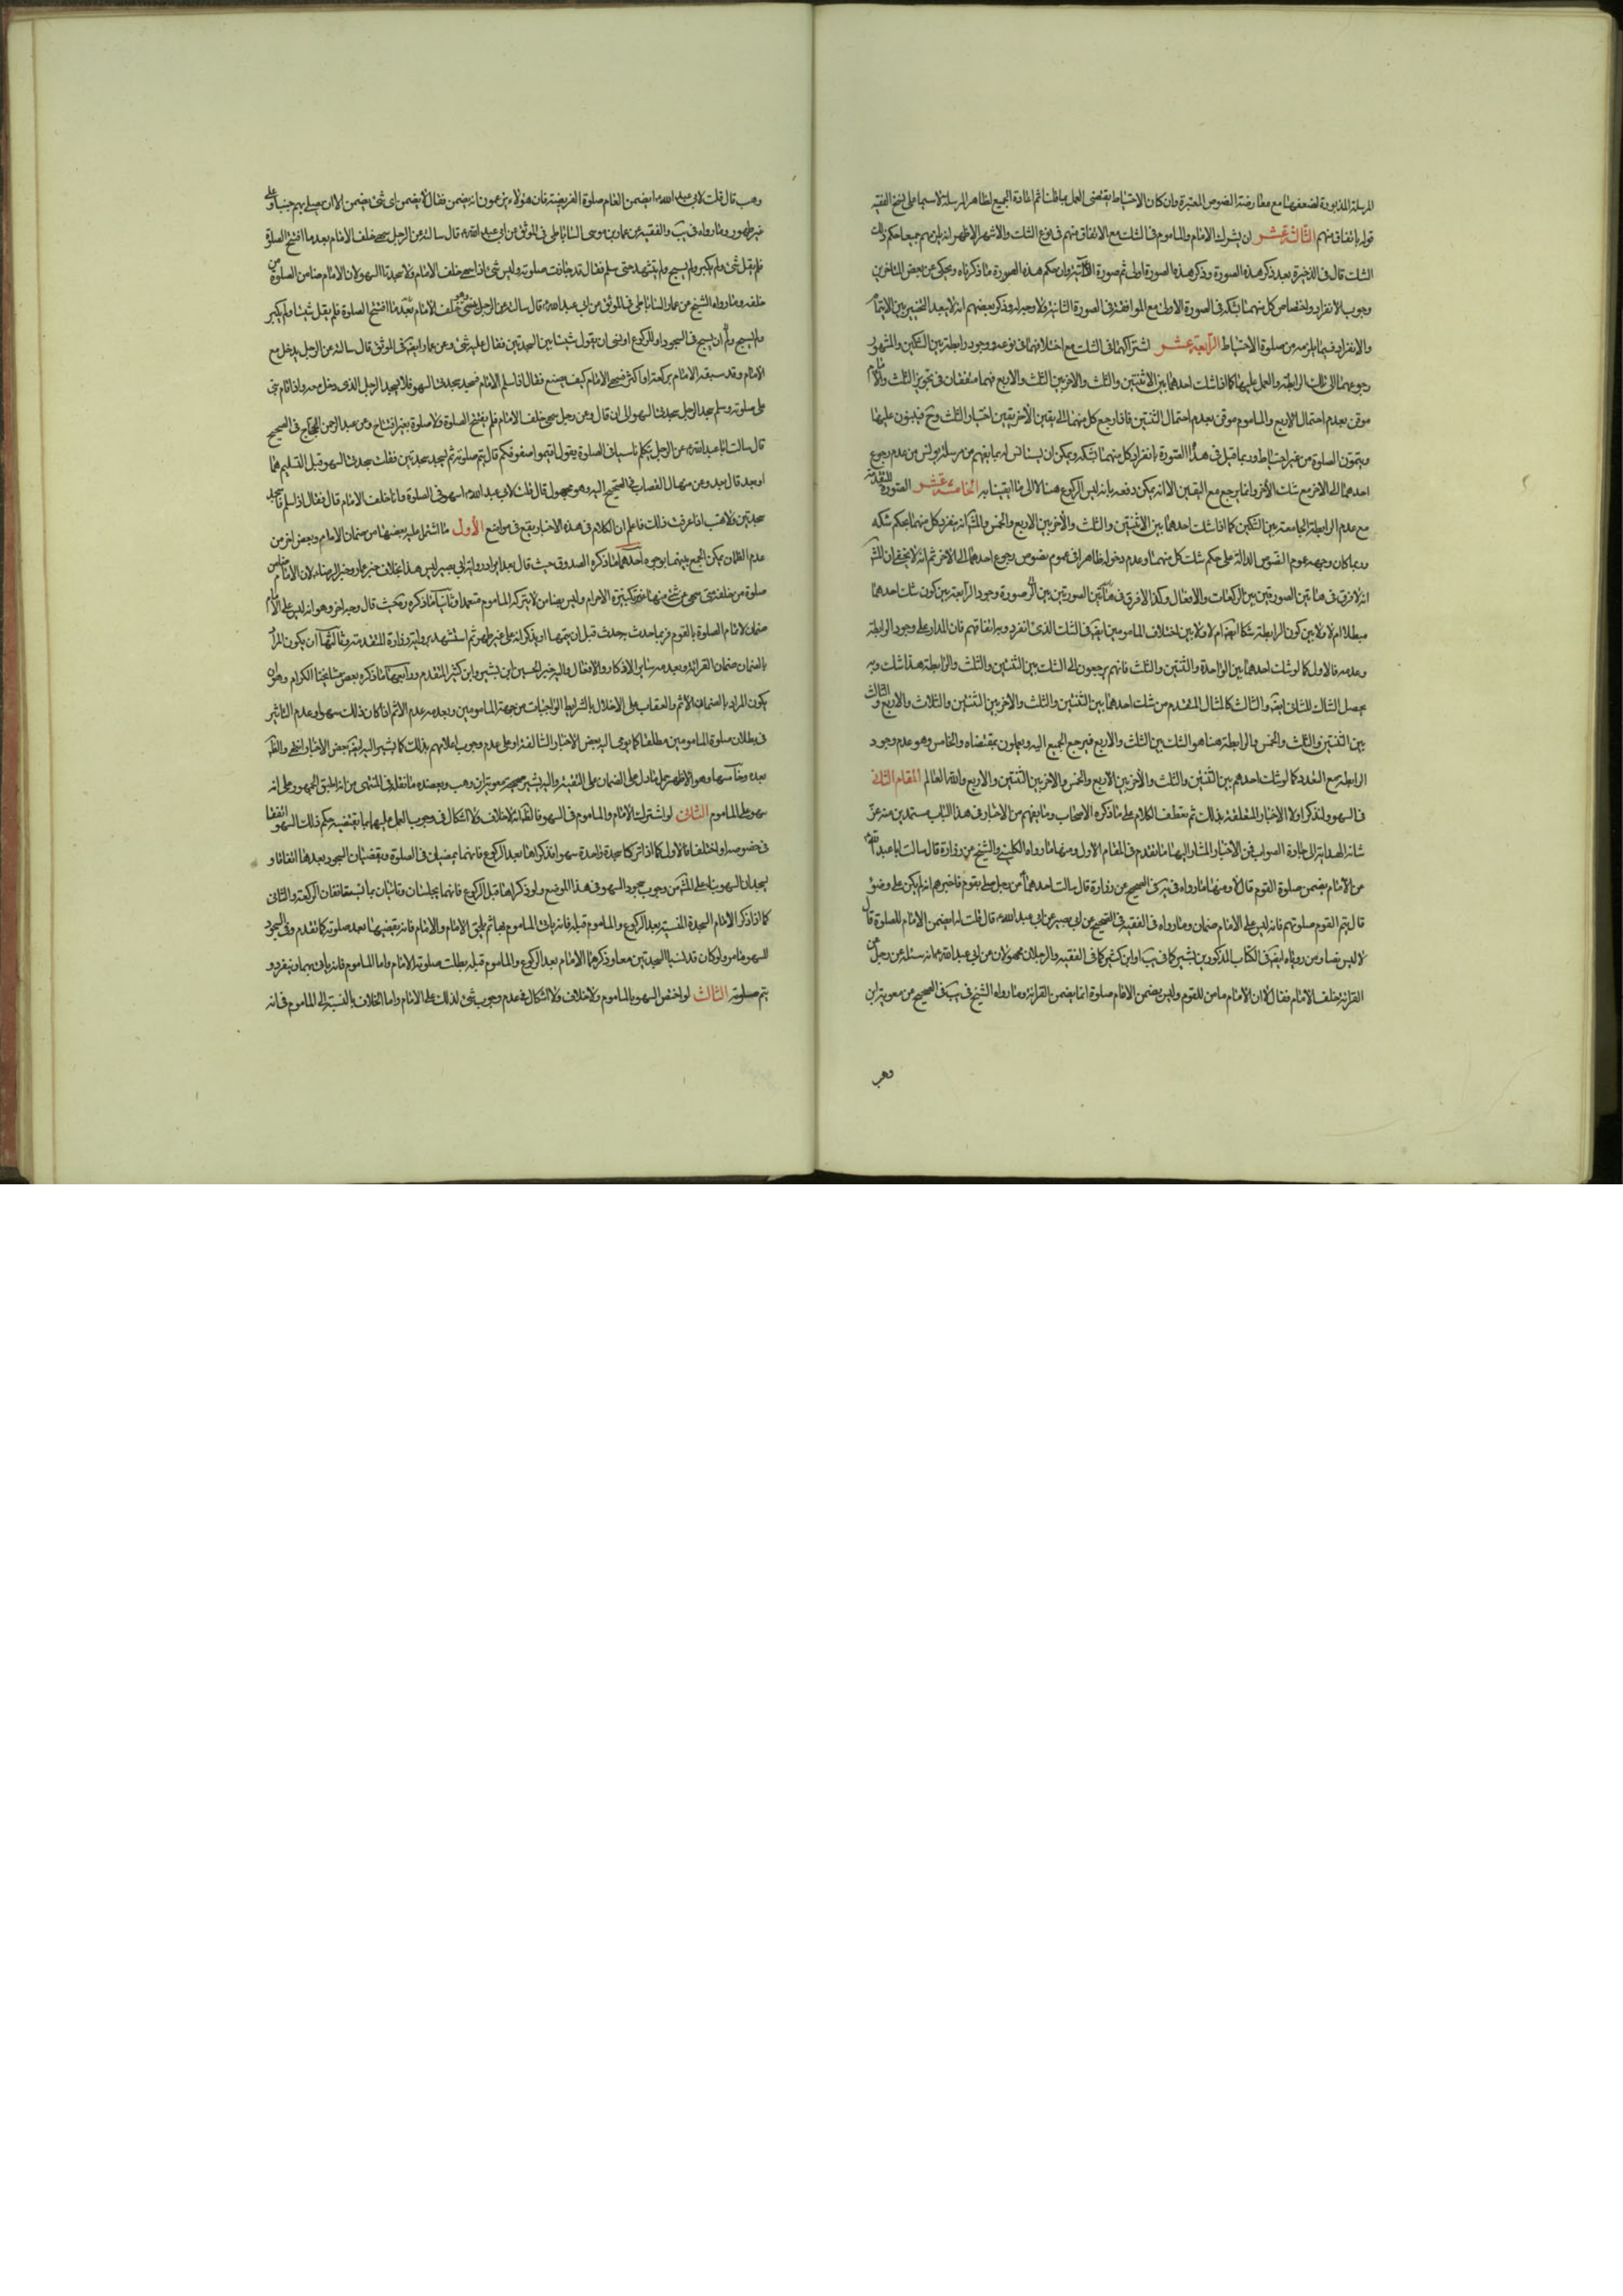 المرسلة المذبورة لضعفها مع معارضة النصوص المعتبرة وان كان الاحتياط يقتضى العمل بما قلنا ثم اعادة الجميع لظاهر المرسلة لا سيما على نسخ الفقيه
قوله باتفاق منهم الثالثة عشر ان يشرك الامام والماموم فى الشك مع الاتفاق منهم فى نوع الشك والاشهر الاظهر انه يلزمهم جميعا حكم ذلك
الشك قال فى الذخيرة بعد ذكر هذه الصورة وذكر هذه الصورة اولى ثم صورة الآتية وان حكم هذه الصورة ما ذكرناه ويحكى عن بعض المتاخرين
وجوب الانفراد واختصاص كل منهما بشكه فى الصورة الاولى مع الموافقة فى الصورة الثانية ولا وجه له وذكر بعضهم انه لا يبعد التخيير بين الايتمام
والانفراد فيما يلزمه من صلوة الاحتياط الرابعة عشر اشتراكهما فى الشك مع اختلافهما فى نوعه ووجود رابطة بين الشكين والمشهور
رجوعهما الى تلك الرابطة والعمل عليها كما اذا شك احدهما بين الاثنتين والثلث والاخر بين الثلث والاربع فهما متفقان فى تجويز الثلث والامام
موقن بعدم احتمال الاربع والماموم موقن بعدم احتمال الثنتين فاذا رجع كل منهما الى يقين الآخر يقين اختيار الثلث وح فيبنون عليها
ويتمون الصلوة من غير احتياط وربما قيل فى هذه الصورة بانفراد كل منهما بشكه ويمكن ان يستانس له بما يفهم من مرسلة يونس من عدم رجوع
احدهما الى الاخر مع شك الآخر وانما يرجع مع اليقين الا انه يمكن دفعه بانه ليس الرجوع هنا الا الى ما ايقنا به الخامسة عشر الصورة المتقدمة
مع عدم الرابطة الجامعة بين الشكين كما اذا شك احدهما بين الاثنتين والثلث والآخر بين الاربع والخمس والمش انه ينفرد كل منهما بحكم شكه
وربما كان وجهه عموم النصوص الدالة على حكم شك كل منهما وعدم دخوله ظاهرا فى عموم نصوص رجوع احدهما الى الاخر ثم انه لا يخفى ان المش
انه لا فرق فى هاتين الصورتين بين الركعات والافعال وكذا لا فرق فى هاتين الصورتين بين صورة وجود الرابعة بين كون شك احدهما
مبطلا ام لا ولا بين كون الرابطة شكا ايضا ام لا ولا بين اختلاف المامومين ايضا فى الشك الذى انفرد به واتفاقهم فان المدار على وجود الرابطة
وعدمه فالاول كما لو شك احدهما بين الواحدة والثنتين والثلث فانهم يرجعون الى الشك بين الثنتين والثلث والرابطة هنا شك وبه
يحصل المثال للثانى ايضا والثالث كالمثال المتقدم من شك احدهما بين الثنتين والثلث والاخر بين الثنتين والثلاث والاربع والثالث
بين الثنتين والثلث والخمس والرابطة هنا هو الشك بين الثلث والاربع فيرجع الجميع اليه ويعملون بمقتضاه والخامس وهو عدم وجود
الرابطة مع التعدد كما لو شك احدهم بين الثنتين والثلث والآخر بين الاربع والخمس والاخر بين الثنتين والاربع والله العالم المقام الثانى
فى السهو ولنذكر اولا الاخبار المتعلقة بذلك ثم نعطف الكلام على ما ذكره الاصحاب وما يفهم من الاخبار فى هذا الباب مستمدين منه عز
شانه الهداية الى جادة الصواب فمن الاخبار المشار اليها ما تقدم فى المقام الاول ومنها ما رواه الكلينى والشيخ عن زرارة قال سالت ابا عبد الله
عن الامام يضمن صلوة القوم قال لا ومنها ما رواه فى يب فى الصحيح عن زرارة قال سالت احدهما عن رجل صلى بقوم فاخبرهم انه لم يكن على وضوء
قال يتم القوم صلوتهم فانه ليس على الامام ضمان وما رواه فى الفقيه فى الصحيح عن ابى بصير عن ابى عبد الله قال قلت له ايضمن الامام للصلوة قال
لا ليس بضامن وما رواه ايضا فى الكتاب المذكور بن بشير كما فى يب او ابن كثير كما فى الفقيه والرجلان مجهولان عن ابى عبد الله انه سئله عن رجل عن
القرائة خلف الامام فقال لا ان الامام ضامن للقوم وليس يضمن الامام صلوة انما يضمن القرائة وما رواه الشيخ فى يب فى الصحيح عن معوية ابن
وهب
وهب قال قلت لابى عبد الله ايضمن الامام صلوة الفريضة فان هؤلاء يزعمون انه يضمن فقال لا يضمن اى شئ يضمن الا ان يصلى بهم جنبا او على
غير طهور وما رواه فى يب والفقيه عن عمار بن موسى الساباطى فى الموثق عن ابى عبد الله قال سالته عن الرجل سهى خلف الامام بعد ما افتتح الصلوة
فلم يقل شئ ولم يكبر ولم يسبح ولم يتشهد حتى سلم فقال قد جازت صلوته وليس شئ اذا سهى خلف الامام ولا سجدتا السهو لان الامام ضامن لصلوة من
خلفه وما رواه الشيخ عن عمار الساباطى فى الموثق عن ابى عبد الله قال سالته عن الرجل ينسى وهو خلف الامام بعد ما افتتح الصلوة فلم يقل شيئا ولم يكبر
ولم يسبح ولم ان يسبح فى السجود او الركوع او نسى ان يقول شيئا بين السجدتين فقال عليه شئ وعن عمار ايضا فى الموثق قال سالته عن الرجل يدخل مع
الامام وقد سبقه الامام بركعة او اكثر فسهى الامام كيف يصنع فقال اذا سلم الامام فسجد سجدتى السهو فلا يسجد الرجل الذى دخل معه واذا قام بنى
على صلوته وسلم سجد الرجل سجدتى السهو الى ان قال وعن رجل سهى خلف الامام فلم يفتتح الصلوة ولا صلوة بغير افتتاح وعن عبد الرحمن الحجاج فى الصحيح
قال سالت ابا عبد الله عن الرجل يتكلم ناسيا فى الصلوة يقول اقيموا صفوفكم قال يتم صلوته ثم يسجد سجدتين فقلت سجدتى السهو قبل التسليم هما
او بعد قال بعد وعن منهال القصاب فى الصحيح اليه وهو مجهول قال قلت لابى عبد الله اسهو فى الصلوة وانا خلف الامام قال فقال اذا سلم فاسجد
سجدتين ولا تهب اذا عرفت ذلك فاعلم ان الكلام فى هذه الاخبار يقع فى مواضع الأول ما اشتمل عليه بعضها من ضمان الامام وبعض اخر من
عدم الضمان يمكن الجمع بينهما بوجوه احدهما ما ذكره الصدوق حيث قال بعد ايراد رواية ابى بصير ليس هذا بخلاف خبر عمار وخبر الرضا لان الامام ضامن
صلوة من خلفه متى سهى عن شئ منها غير تكبيرة الاحرام وليس بضامن لا يتركه الماموم متعمدا وثانيا ما ذكره حيث قال وجه اخر وهو انه ليس على الامام
ضمان لاتمام الصلوة بالقوم فربما حدث به حدث قبل ان يتمها او يذكر انه على غير طهر ثم استشهد برواية زرارة المتقدمة وثالثها ان يكون المراد
بالضمان ضمان القرائة وبعدمه سائر الاذكار والافعال واليه خير الحسين ابن بشير وابن كثير المتقدم ورابعها ما ذكره بعض مشايخنا الكرام وهو ان
يكون المراد بالضمان الاثم والعقاب على الاخلال بالشرايط الواجبات من جهة المامومين وبعدمه عدم الاثم اذا كان ذلك سهوا وعدم التاثير
فى بطلان صلوة المامومين مطلقا كما يومى اليه بعض الاخبار السالفة او على عدم وجوب اعلامهم بذلك كما يشير اليه ايضا بعض الاخبار انتهى والظ
بعده وخامسها وهو الاظهر حمل ما دل على الضمان على التقية واليه يشير صحيحة معوية بن وهب ويعضده ما نقله فى المنتهى من انه اطبق الجمهور على انه
سهو على الماموم الثانى لو اشترك الامام والماموم فى السهو فالظ انه لا خلاف ولا اشكال فى وجوب العمل عليهما بما يقتضيه حكم ذلك السهو اتفقا
فى خصوصه او اختلفا فالاول كما اذا تركا سجدة واحدة سهوا فتذكراها بعد الركوع فانهما يمضيان فى الصلوة ويقضيان السجود بعدها اتفاقا و
يسجدان السهو بناء على المش من وجوب سجود السهو فى هذا الموضع ولو ذكراها قبل الركوع فانهما يجلسان وياتيان بما ثم يستانفان الركعة والثانى
كما اذا ذكر الامام السجدة المنسية بعد الركوع والماموم قبله فانه يات الماموم بها ثم يلحق الامام والامام فانه يقضيها بعد صلوته كما تقدم وفى السجود
للسهو ما مر ولو كان قد نسيا السجدتين معا وذكرهما الامام بعد الركوع والماموم قبله بطلت صلوة الامام واما الماموم فانه ياتى بهما وينفرد و
يتم صلوته الثالث لو اختص السهو بالماموم ولا خلاف ولا اشكال فى عدم وجوب شئ لذلك على الامام واما الخلاف بالنسبة الى الماموم فى انه